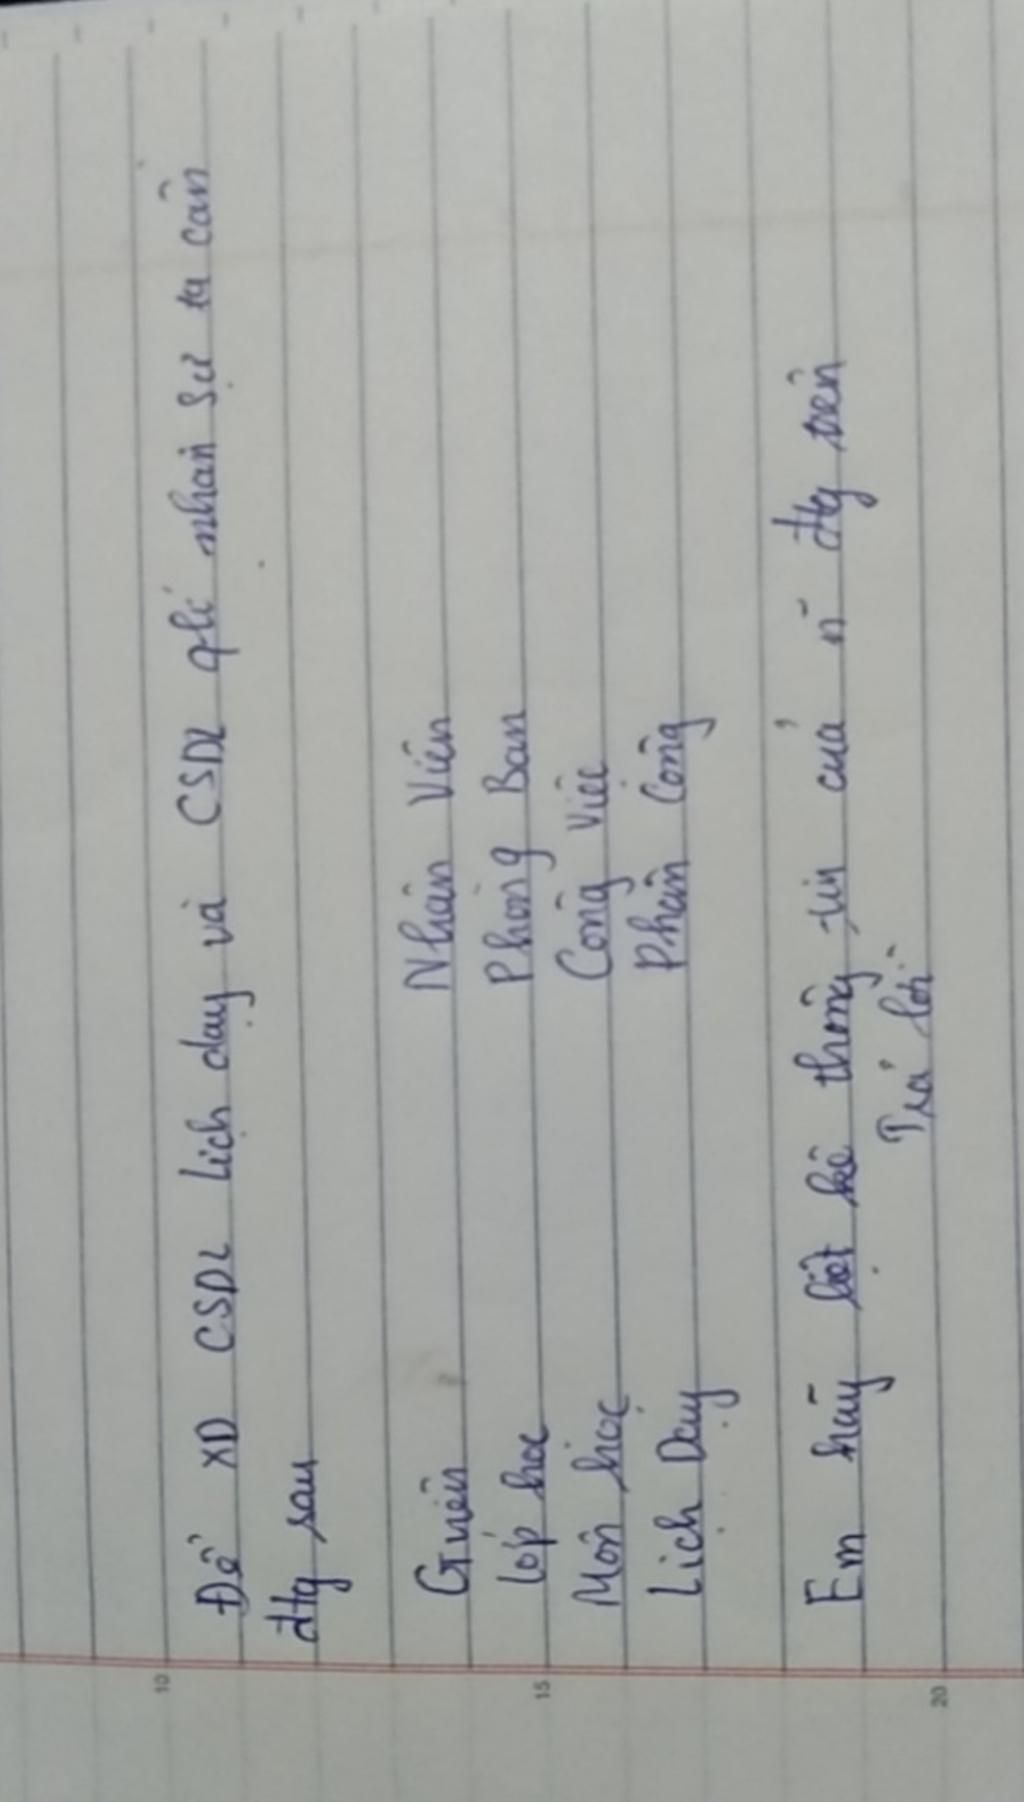 Để XD CSDL Lịch dạy và CSDL qlí nhân sự ta cần
đtg sau
Gviên Nhân Viên
Lớp học Phòng Ban
Môn học Công Việc
Lịch Dạy Phân Công
Em hãy liệt kê thông tin của n~ đtg trên
Trả lời
10
15
20